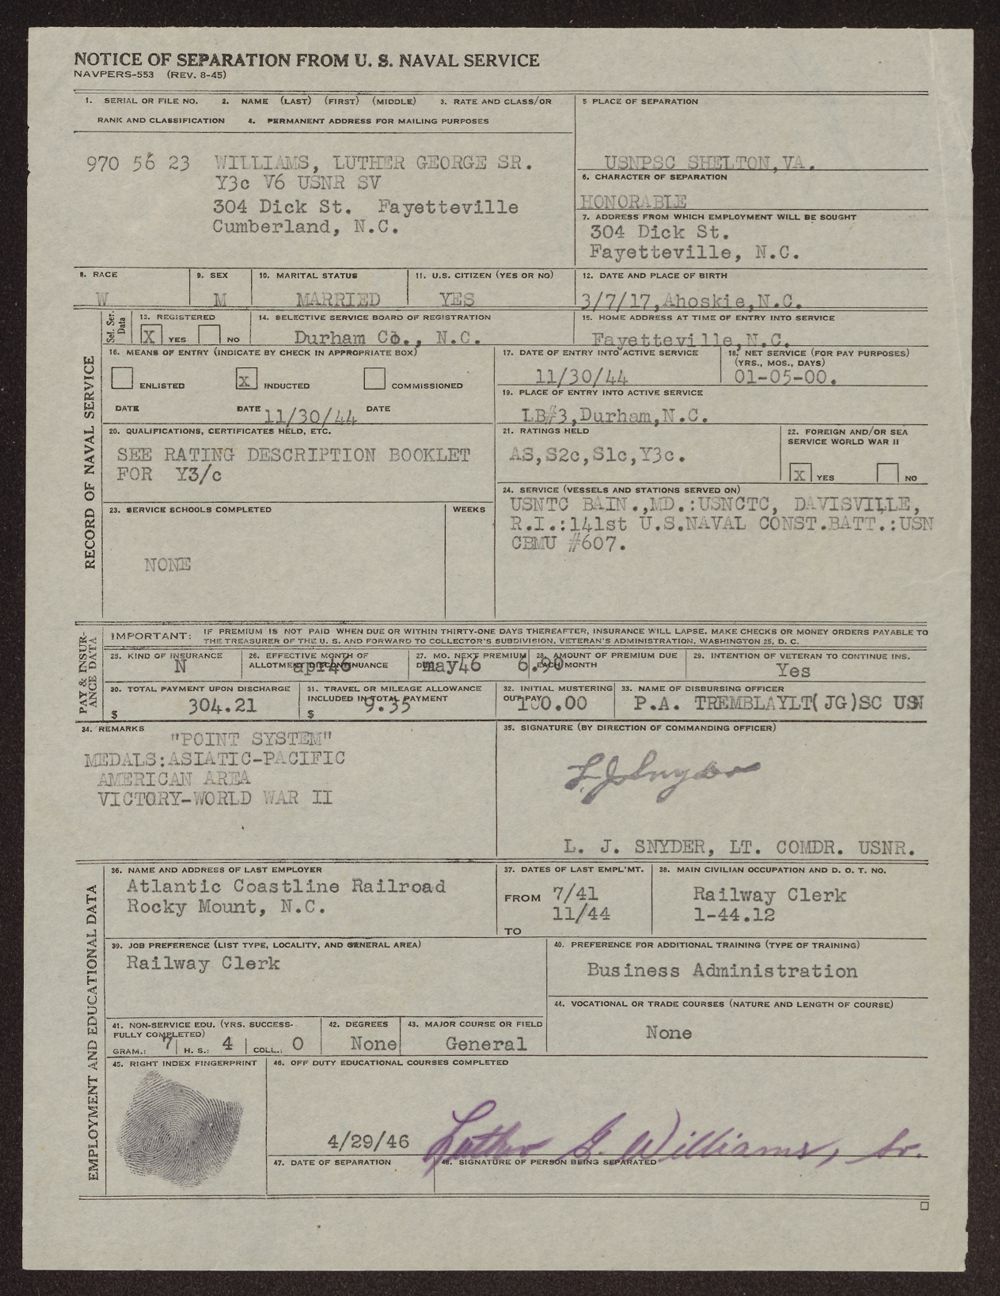 NOTICE OF SEPARATION FROM U. S. NAVAL SERVICE
NAVPERS-553 (REV. 8-45)
1. SERIAL OR FILE NO. 2. NAME (LAST) (FIRST) (MIDDLE) 3. RATE AND CLASS/OR
RANK AND CLASSIFICATION 4. PERMANENT ADDRESS FOR MAILING PURPOSES
970 56 23 WILLIAMS, LUTHER GEORGE SR.
Y3c V6 USNR SV
304 Dick St. Fayetteville
Cumberland, N.C.
5 PLACE OF SEPARATION
USNPSC SHELTON,VA.
6. CHARACTER OF SEPARATION
HONORABLE
7. ADDRESS FROM WHICH EMPLOYMENT WILL BE SOUGHT
304 Dick St.
Fayetteville, N.C.
8. RACE
W
9. SEX
M
10. MARITAL STATUS
MARRIED
11. U.S. CITIZEN (YES OR NO)
YES
12. DATE AND PLACE OF BIRTH
3/7/17,Ahoskie,N.C.
Sel. Ser. Data
13. REGISTERED
X YES NO
14. SELECTIVE SERVICE BOARD OF REGISTRATION
Durham Co., N.C.
15. HOME ADDRESS AT TIME OF ENTRY INTO SERVICE
Fayetteville,N.C.
RECORD OF NAVAL SERVICE
16. MEANS OF ENTRY (INDICATE BY CHECK IN APPROPRIATE BOX)
ENLISTED X INDUCTED COMMISSIONED
DATE DATE 11/30/44 DATE
17. DATE OF ENTRY INTO ACTIVE SERVICE
11/30/44
18. NET SERVICE (FOR PAY PURPOSES)
(YRS., MOS., DAYS)
01-05-00.
19. PLACE OF ENTRY INTO ACTIVE SERVICE
LB#3,Durham,N.C.
20. QUALIFICATIONS, CERTIFICATES HELD, ETC.
SEE RATING DESCRIPTION BOOKLET
FOR Y3/c
21. RATINGS HELD
AS,S2c,S1c,Y3c.
22. FOREIGN AND/OR SEA
SERVICE WORLD WAR II
X YES NO
23. SERVICE SCHOOLS COMPLETED WEEKS
NONE
24. SERVICE (VESSELS AND STATIONS SERVED ON)
USNTC BAIN.,MD.:USNCTC, DAVISVILLE,
R.I.:141st U.S.NAVAL CONST.BATT.:USN
CBMU #607.
PAY & INSUR-
ANCE DATA
IMPORTANT: IF PREMIUM IS NOT PAID WHEN DUE OR WITHIN THIRTY-ONE DAYS THEREAFTER, INSURANCE WILL LAPSE. MAKE CHECKS OR MONEY ORDERS PAYABLE TO
THE TREASURER OF THE U. S. AND FORWARD TO COLLECTOR'S SUBDIVISION, VETERAN'S ADMINISTRATION, WASHINGTON 25, D. C.
25. KIND OF INSURANCE
N
26. EFFECTIVE MONTH OF
ALLOTMENT DISCONTINUANCE
apr46
27. MO. NEXT PREMIUM
DUE
may46
28. AMOUNT OF PREMIUM DUE
EACH MONTH
6.90
29. INTENTION OF VETERAN TO CONTINUE INS.
Yes
30. TOTAL PAYMENT UPON DISCHARGE
$ 304.21
31. TRAVEL OR MILEAGE ALLOWANCE
INCLUDED IN TOTAL PAYMENT
$ 9.35
32. INITIAL MUSTERING
OUT PAY
100.00
33. NAME OF DISBURSING OFFICER
P.A. TREMBLAYLT(JG)SC USN
34. REMARKS
"POINT SYSTEM"
MEDALS:ASIATIC-PACIFIC
AMERICAN AREA
VICTORY-WORLD WAR II
35. SIGNATURE (BY DIRECTION OF COMMANDING OFFICER)
L. J. Snyder
L. J. SNYDER, LT. COMDR. USNR.
EMPLOYMENT AND EDUCATIONAL DATA
36. NAME AND ADDRESS OF LAST EMPLOYER
Atlantic Coastline Railroad
Rocky Mount, N.C.
37. DATES OF LAST EMPL'MT.
FROM 7/41
11/44
TO
38. MAIN CIVILIAN OCCUPATION AND D. O. T. NO.
Railway Clerk
1-44.12
39. JOB PREFERENCE (LIST TYPE, LOCALITY, AND GENERAL AREA)
Railway Clerk
40. PREFERENCE FOR ADDITIONAL TRAINING (TYPE OF TRAINING)
Business Administration
41. NON-SERVICE EDU. (YRS. SUCCESS-
FULLY COMPLETED)
GRAM.: 7 H. S.: 4 COLL.: 0
42. DEGREES
None
43. MAJOR COURSE OR FIELD
General
44. VOCATIONAL OR TRADE COURSES (NATURE AND LENGTH OF COURSE)
None
45. RIGHT INDEX FINGERPRINT
46. OFF DUTY EDUCATIONAL COURSES COMPLETED
4/29/46
47. DATE OF SEPARATION
Luther G. Williams, Sr.
48. SIGNATURE OF PERSON BEING SEPARATED